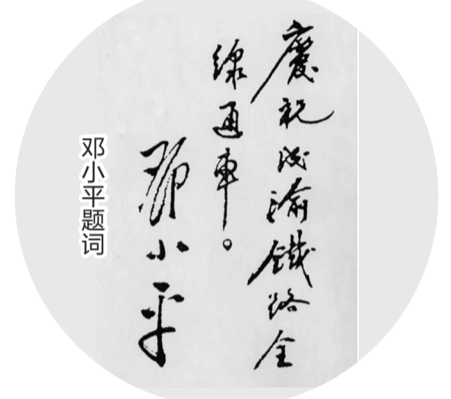 慶祝成渝鐵路全
線通車。
邓小平
邓小平题词